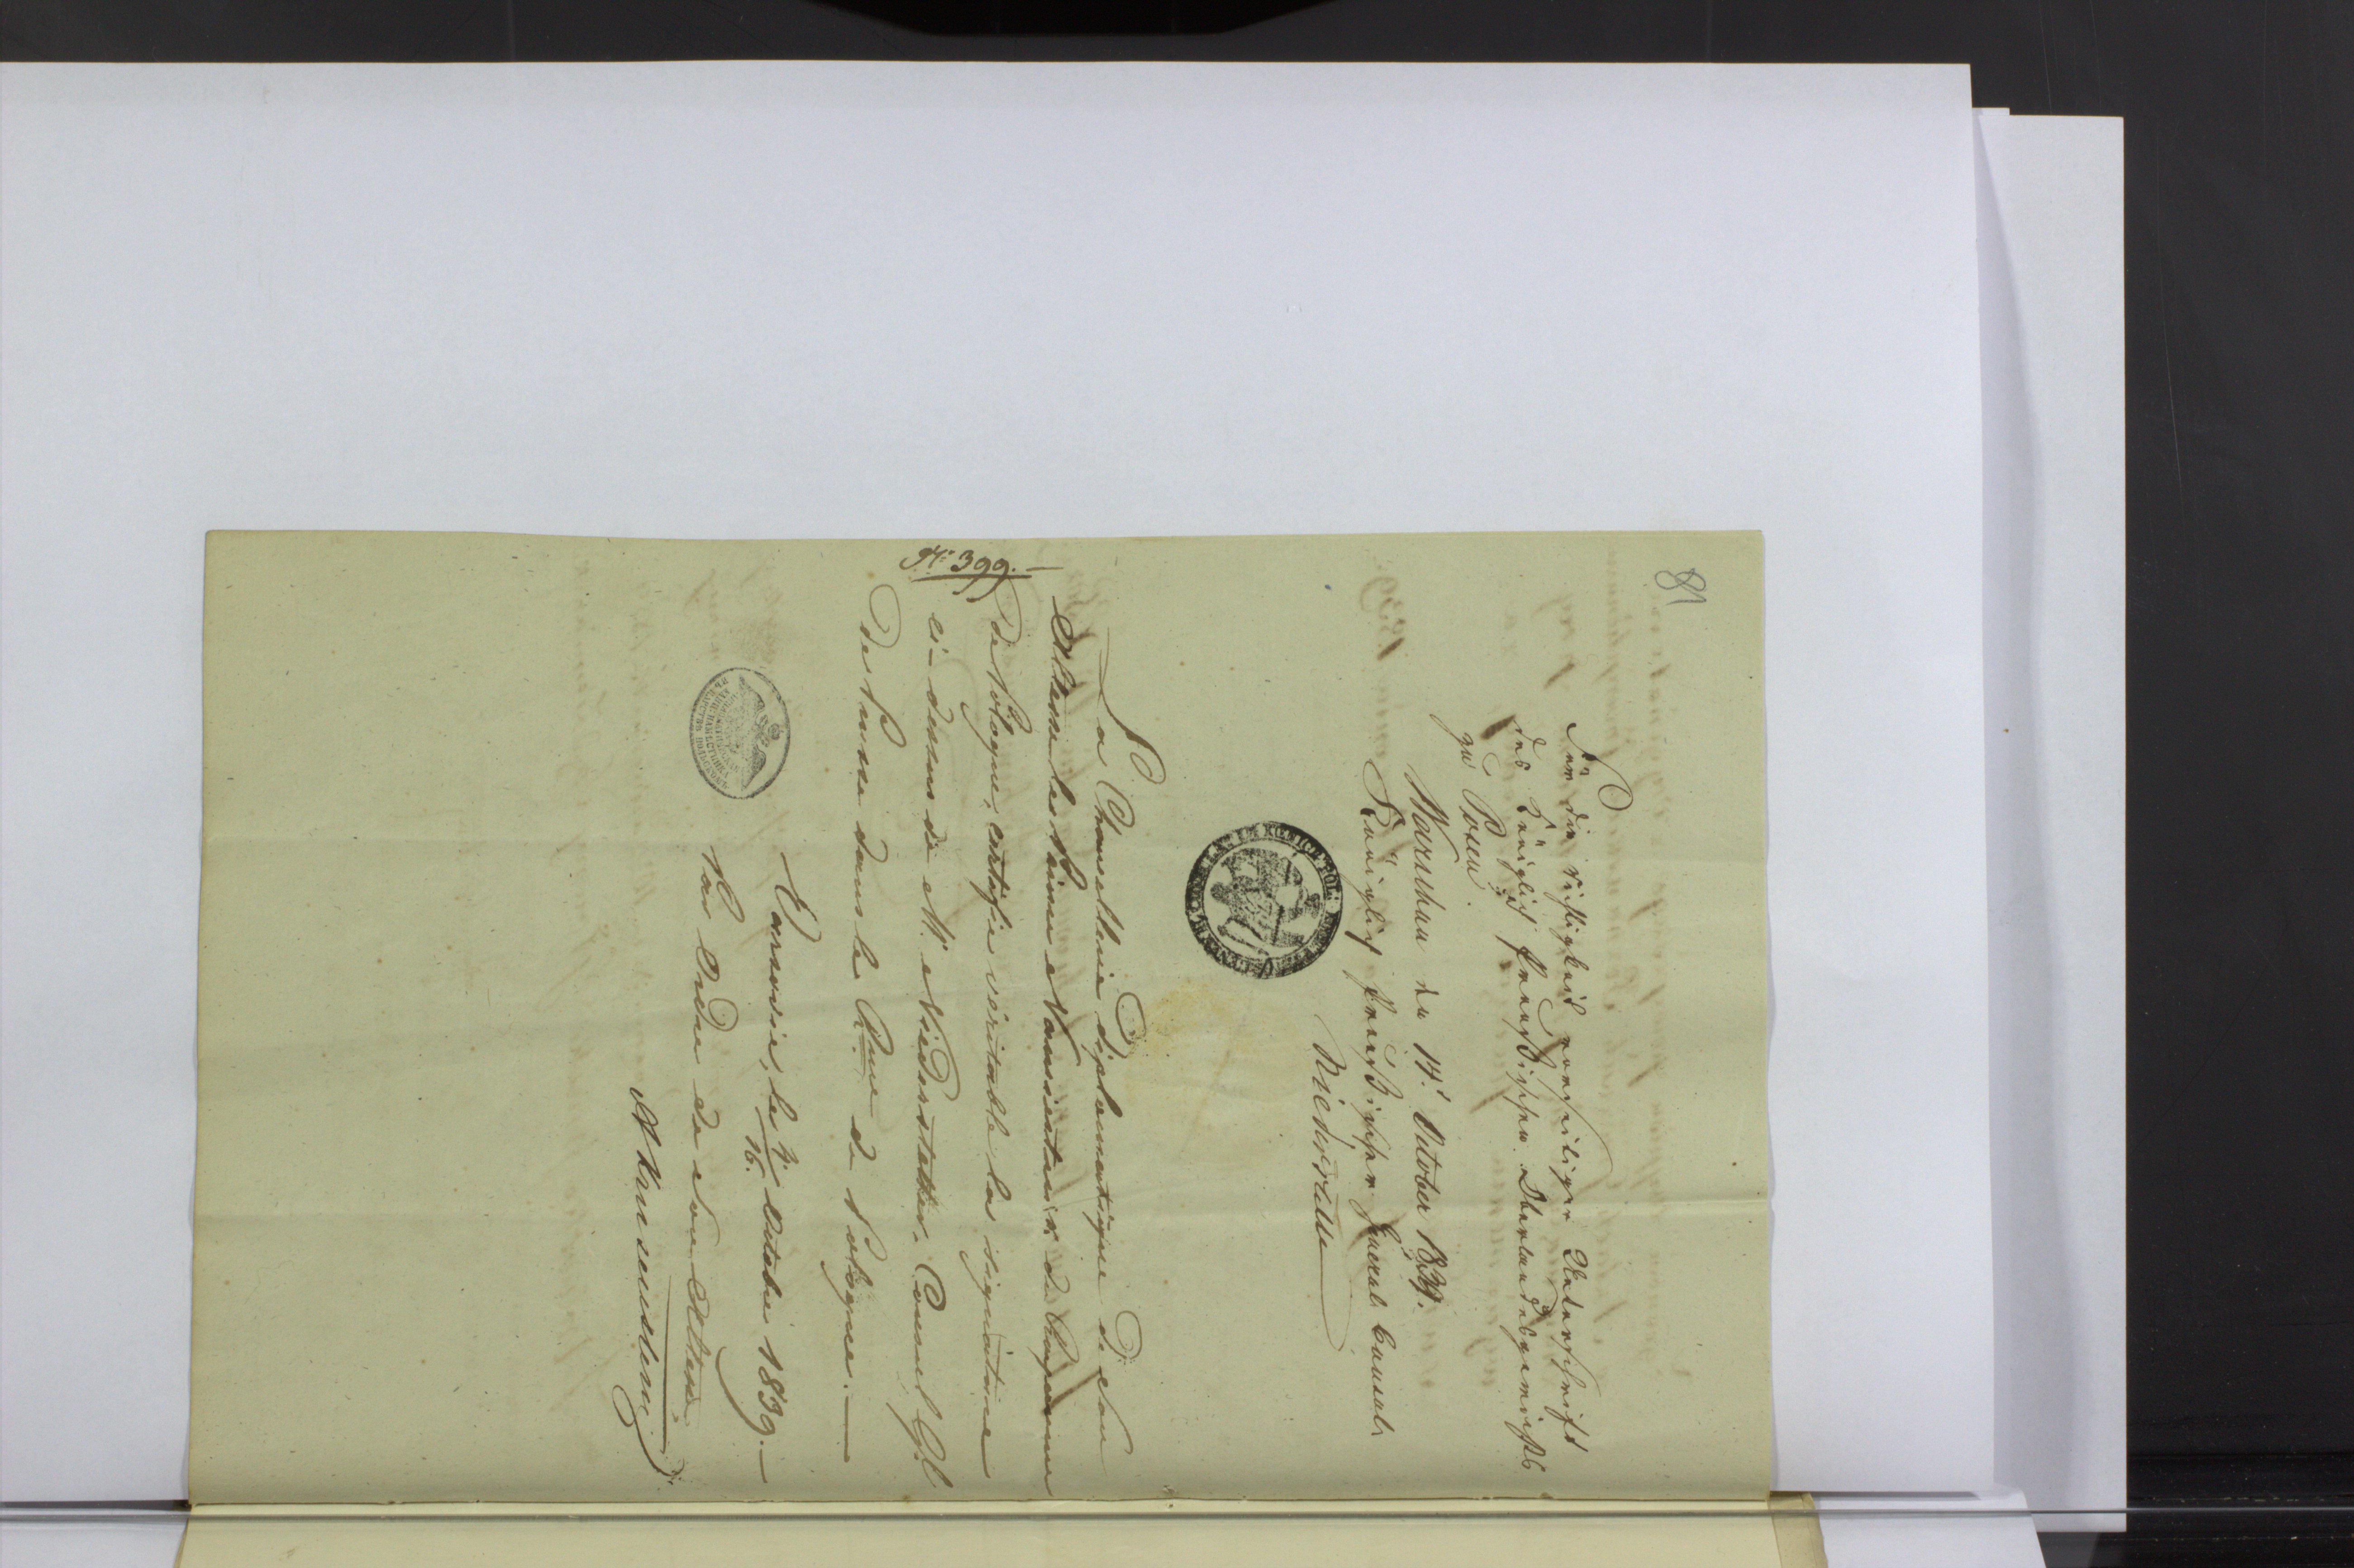 81
Für die Richtigkeit vorseitiger Unterschrift
des Königlich Preußischen Oberlandesgerichts
zu Posen.
Warschau den 14. October 1839.
Königlich Preußischer General Consul
Niederstetter
La Chancellerie Diplomatique de Son
Altesse le Prince Namiestnik du Royaume
de Pologne, certifie véritable la signature
ci-dessus de Mr Niederstetter, Consul Gl
de Prusse dans le Rme de Pologne.—
No 399.—
Varsovie, le 4/16. Octobre 1839.—
Par Ordre de Son Altesse